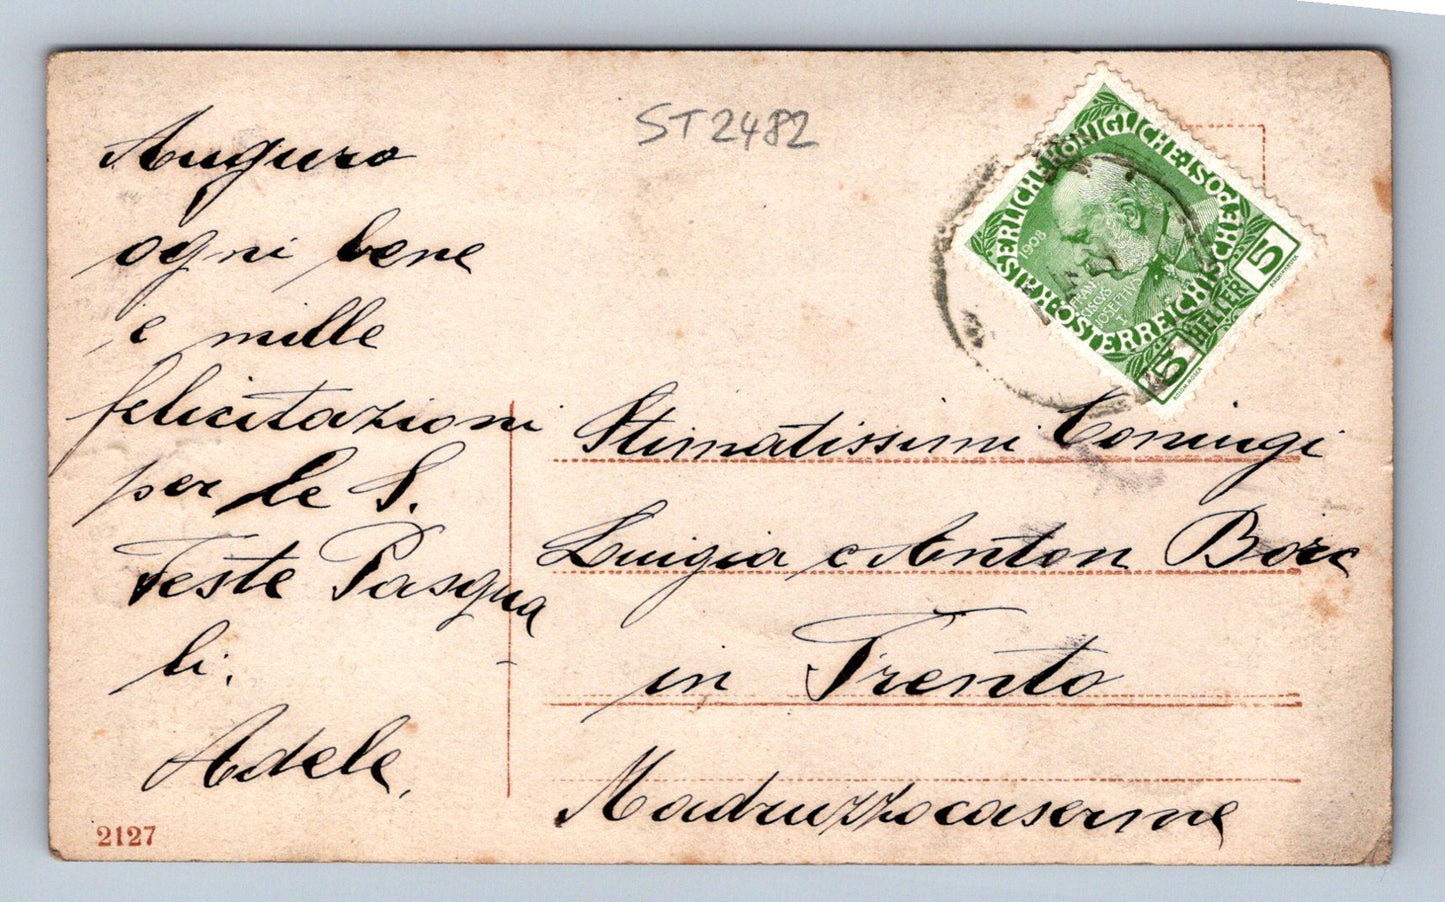 ST2482
Auguro
ogni bene
e mille
felicitazioni
per le S.
Feste Pasqua
li.
Adele,
2127
KAISERLICHE KÖNIGLICHE ÖSTERREICHISCHE POST
1908
FRAN
CISCVS
IOSEPHVS
I
5 HELLER 5
Stimatissimi Coniugi
Luigia e Anton
in Trento
Madruzzocaserme